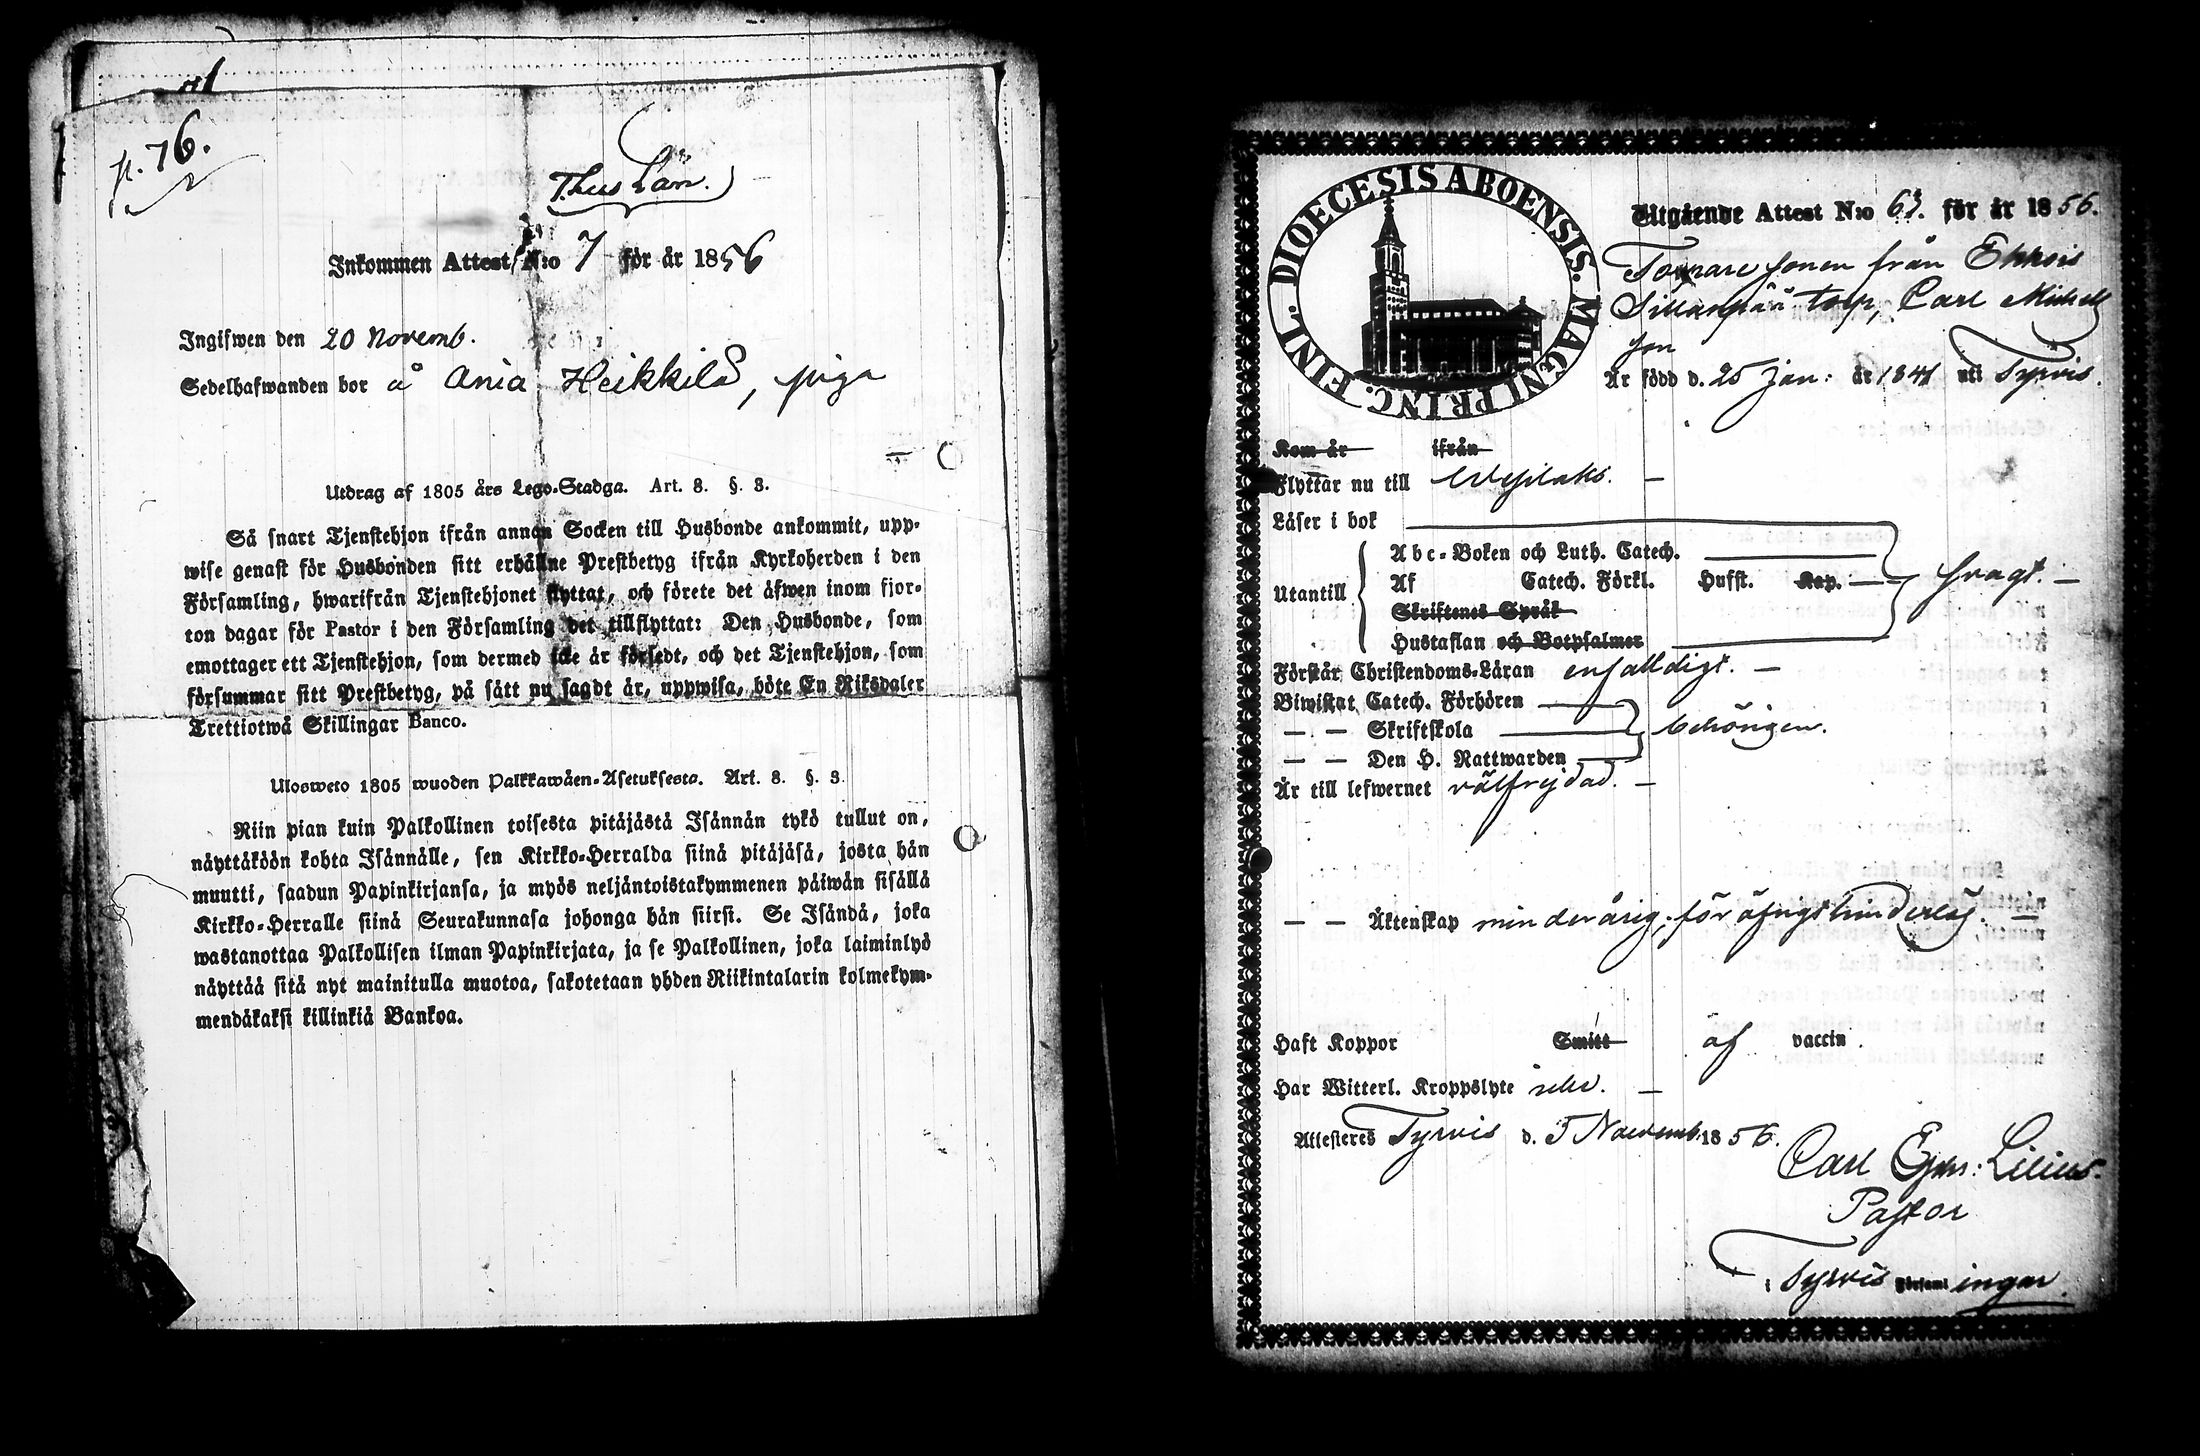 p. 76.
Inkommen Attest N:o 7 för år 1856
Ingifwen den 20 Novemb.
Sedelhafwanden bor å Ania Heikkilä, piga
Utdrag af 1805 års Lego-Stadga. Art. 3. §. 3.
Så snart Tjenstehjon ifrån annan Socken till Husbonde ankommit, upp-
wise genast för Husbonden sitt erhållne Prestbetyg ifrån Kyrkoherden i den
Församling, hwarifrån Tjenstehjonet flyttat, och förete det äfwen inom fjor-
ton dagar för Pastor i den Församling det tillflyttat: Den Husbonde, som
emottager ett Tjenstehjon, som dermed icke är försedt, och det Tjenstehjon, som
försummar sitt Prestbetyg, på sätt nu sagdt är, uppwisa, böte En Riksdaler
Trettiotwå Skillingar Banco.
Ulosweto 1805 wuoden Palkkawäen-Asetuksesta. Art. 3. §. 3.
Niin pian kuin Palkollinen toisesta pitäjästä Isännän tykö tullut on,
näyttäköön kohta Isännälle, sen Kirkko-Herralda siinä pitäjäsä, josta hän
muutti, saadun Papinkirjansa, ja myös neljäntoistakymmenen päiwän sisällä
Kirkko-Herralle siinä Seurakunnasa johonga hän siirsi. Se Isändä, joka
wastanottaa Palkollisen ilman Papinkirjata, ja se Palkollinen, joka laiminlyö
näyttää sitä nyt mainitulla muotoa, sakotetaan yhden Riikintalarin kolmekym-
mendäkaksi killinkiä Bankoa.
DIOECESIS ABOENSIS. MAGNI PRINC. FINL.
Utgående Attest N:o 63. för år 1856.
Torpare sonen från Ekkois
Sillanpää torp, Carl Michels
son
Är född d. 25 Jan: år 1841 uti Tyrvis.
Kom år ifrån
Flyttar nu till Wesilaks. —
Läser i bok
Utantill
Abc-Boken och Luth. Catech.
Af Catech. Förkl. Husst. Kap. — svagt. —
Skriftenes Språk
Hustaflan och Botpsalmer
Förstår Christendoms-Läran enfalldigt. —
Biwistat Catech. Förhören
— — Skriftskola behörigen.
— — Den H. Nattwarden
Är till lefwernet välfrejdad. —
— — Äktenskap minderårig, för öfrigt hinderlös. —
Haft Koppor Smitt af vaccin.
Har Witterl. Kroppslyte icke. —
Attesteres Tyrvis d. 5 Novemb. 1856.
Carl Lilius.
Pastor
i Tyrvis Församl ingar.